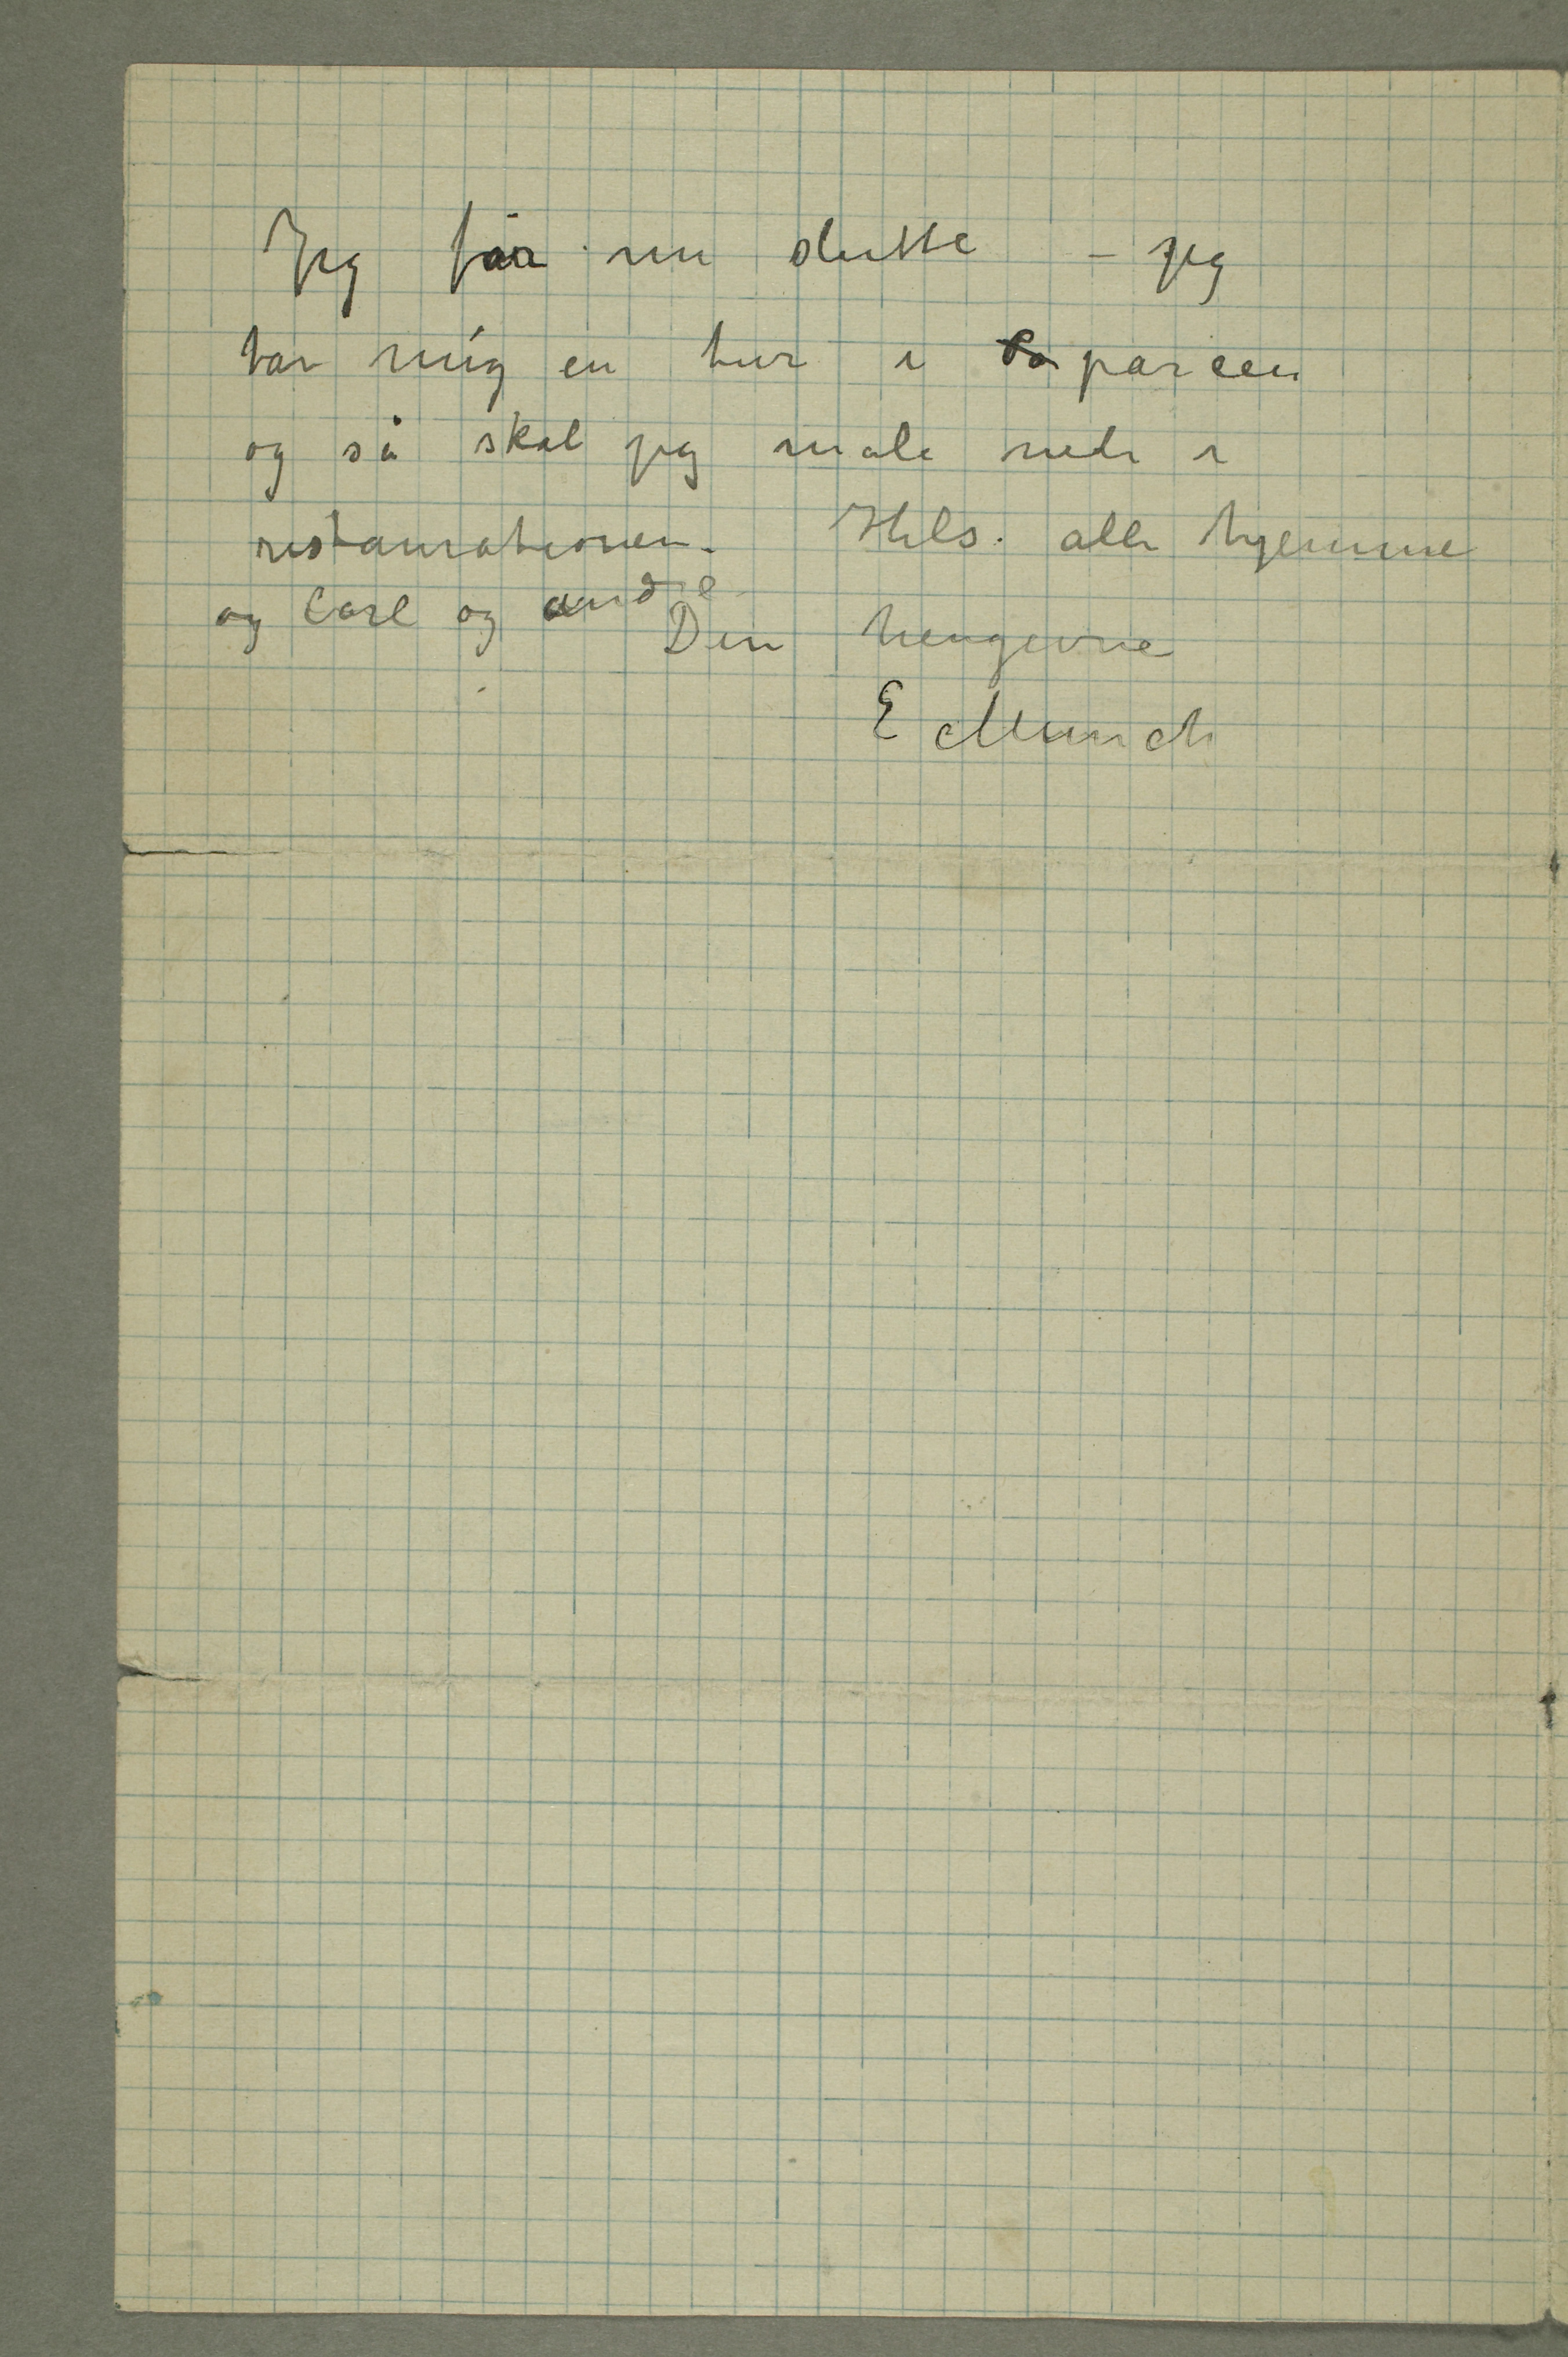 Jeg får nu slutte – jeg
tar mig en tur i parcen
og så skal jeg male nede i
restaurationen. Hils. alle hjemme
og Carl og andre
Din hengivne
E Munch